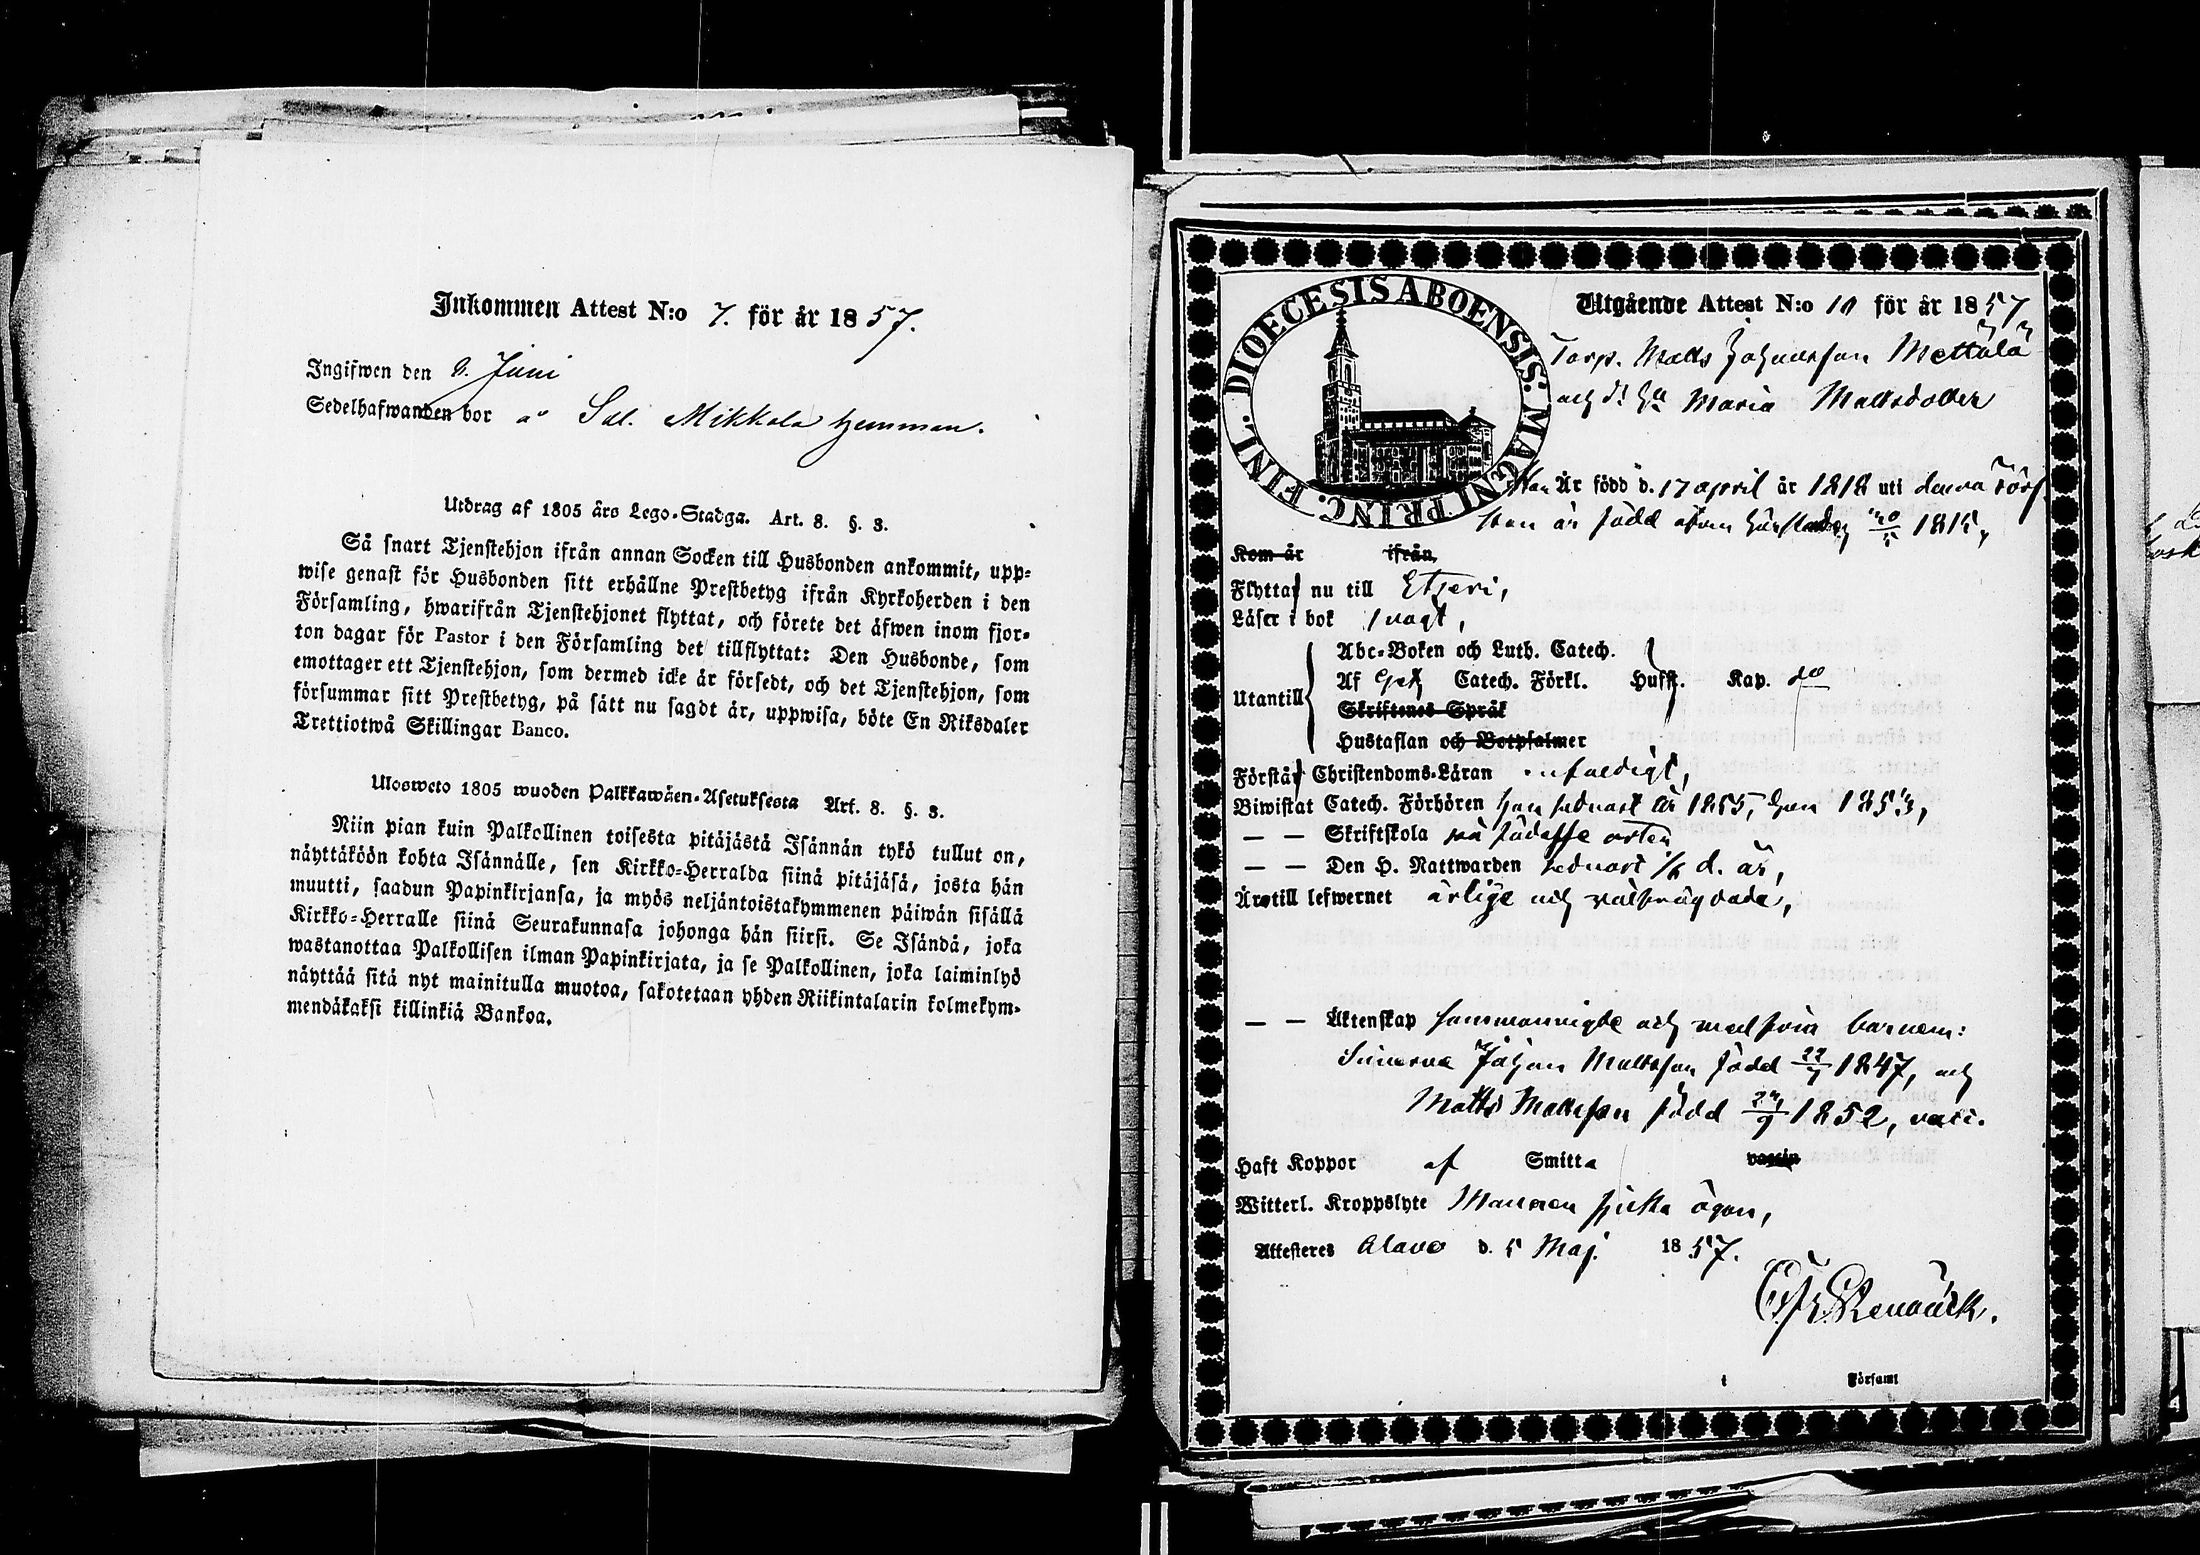 Inkommen Attest N:o 7. för år 1857.
Ingifwen den 9. Juni
Sedelhafwanden bor å Sal. Mikkola hemman.
Utdrag af 1805 års Lego-Stadga. Art. 8. §. 3.
Så snart Tjenstehjon ifrån annan Socken till Husbonden ankommit, upp-
wise genast för Husbonden sitt erhållne Prestbetyg ifrån Kyrkoherden i den
Församling, hwarifrån Tjenstehjonet flyttat, och förete det äfwen inom fjor-
ton dagar för Pastor i den Församling det tillflyttat: Den Husbonde, som
emottager ett Tjenstehjon, som dermed icke är försedt, och det Tjenstehjon, som
försummar sitt Prestbetyg, på sätt nu sagdt är, uppwisa, böte En Riksdaler
Trettiotwå Skillingar Banco.
Ulosweto 1805 wuoden Palkkawäen-Asetuksesta Art. 8. §. 3.
Niin pian kuin Palkollinen toisesta pitäjästä Isännän tykö tullut on,
näyttäköön kohta Isännälle, sen Kirkko-Herralda siinä pitäjäsä, josta hän
muutti, saadun Papinkirjansa, ja myös neljäntoistakymmenen päiwän sisällä
Kirkko-Herralle siinä Seurakunnasa johonga hän siirsi. Se Isändä, joka
wastanottaa Palkollisen ilman Papinkirjata, ja se Palkollinen, joka laiminlyö
näyttää sitä nyt mainitulla muotoa, sakotetaan yhden Riikintalarin kolmekym-
mendäkaksi killinkiä Bankoa.
DIOECESIS ABOENSIS: MAGNI PRINC. FINL.
Utgående Attest N:o 10 för år 1857
Torp. Matts Johansson Mettälä
och d: hu Maria Mattsdotter
Han Är född d. 17 april år 1818 uti denna Förs.
Hon är född 1815,
Kom år ifrån,
Flytta nu till Etseri,
Läser i bok svagt,
Utantill
Abc-Boken och Luth. Catech.
Af Catech. Förkl. Hufst. Kap. do
Skriftenes Språk
Hustaflan och Botpsalmer
Förstår Christendoms-Läran enfaldigt,
Biwistat Catech. Förhören han sednast år 1855, hon 1853,
— — Skriftskola på födelse orten
— — Den H. Nattwarden sednast d. år,
Äro till lefwernet ärlige och välfrägdade,
— — Äktenskap sammanvigde och med sina barnen:
Sönerne Johan Mattsson född 22/7 1847, och
Matts Mattsson född 24/9 1852, vacc.
Haft Koppor af Smitta vaccin
Witterl. Kroppslyte Mannen sjuka ögon,
Attesteres Alavo d. 5 Maj. 1857.
i Församl